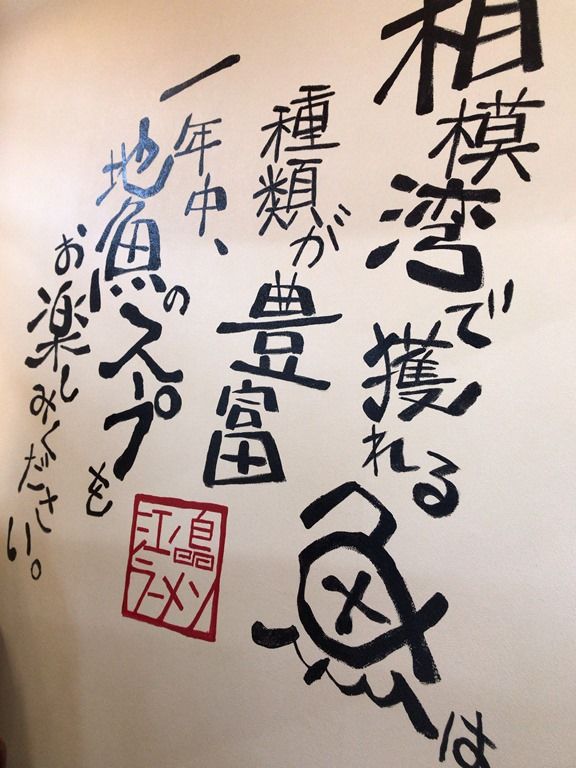 相模湾で獲れる魚は
種類が豊富
一年中、
地魚のスープを
お楽しみください。
江ノ島
ラーメン